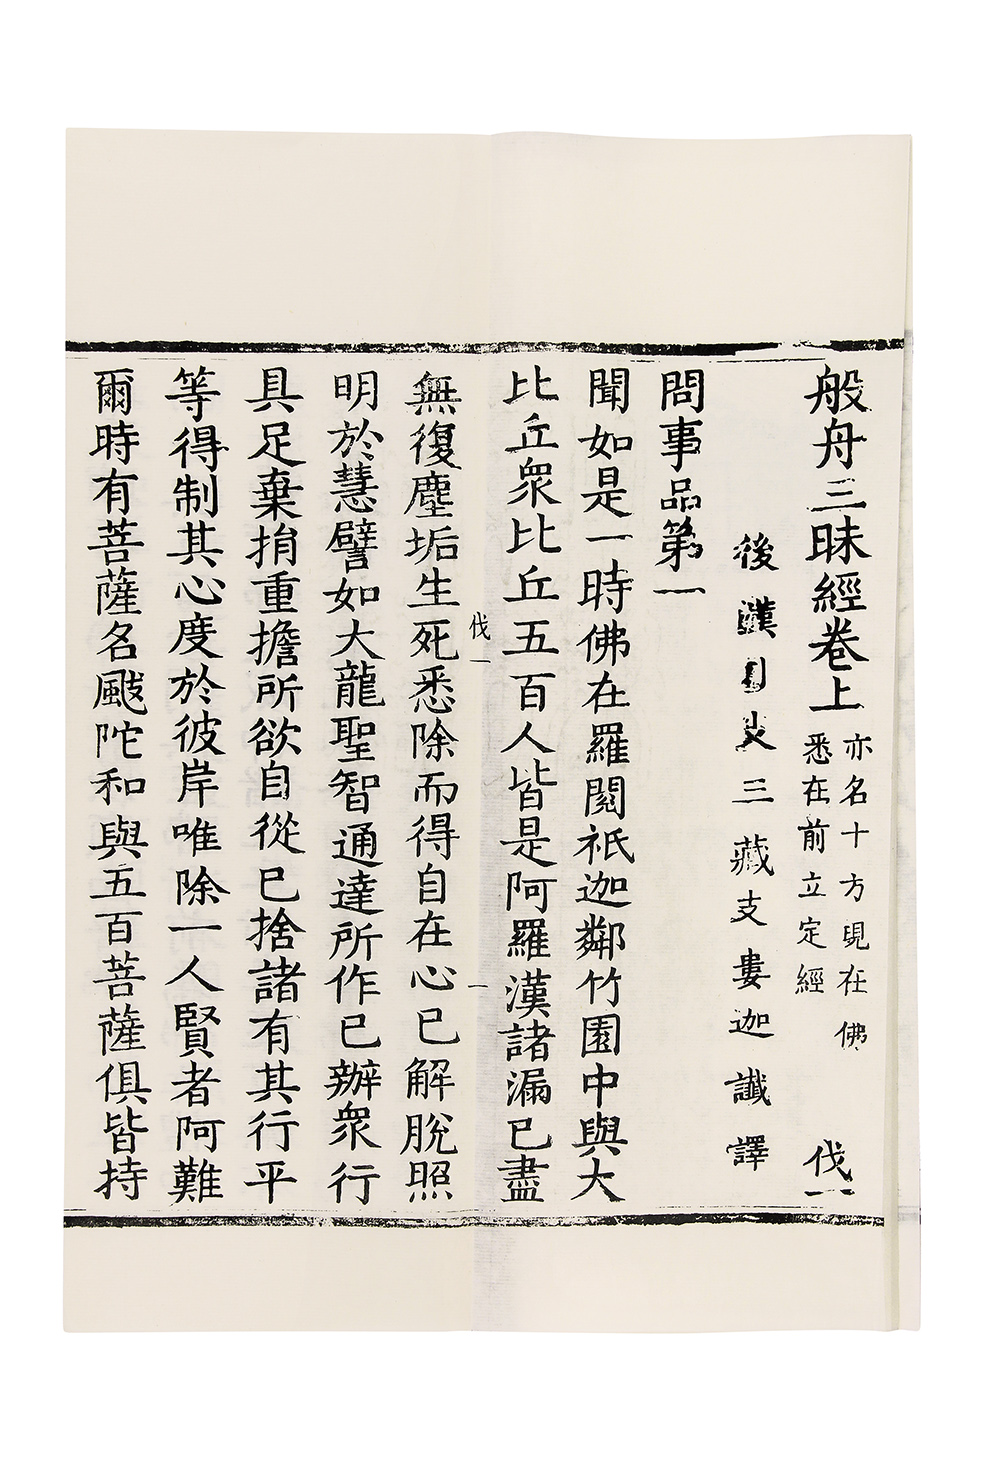 般舟三昧經卷上 亦名十方現在佛悉在前立定經 伐一
後漢月支三藏支婁迦讖譯
問事品第一
聞如是一時佛在羅閱祇迦鄰竹園中與大
比丘衆比丘五百人皆是阿羅漢諸漏已盡
伐一 一
無復塵垢生死悉除而得自在心已解脫照
明於慧譬如大龍聖智通達所作已辦衆行
具足棄捐重擔所欲自從已捨諸有其行平
等得制其心度於彼岸唯除一人賢者阿難
爾時有菩薩名颰陀和與五百菩薩俱皆持